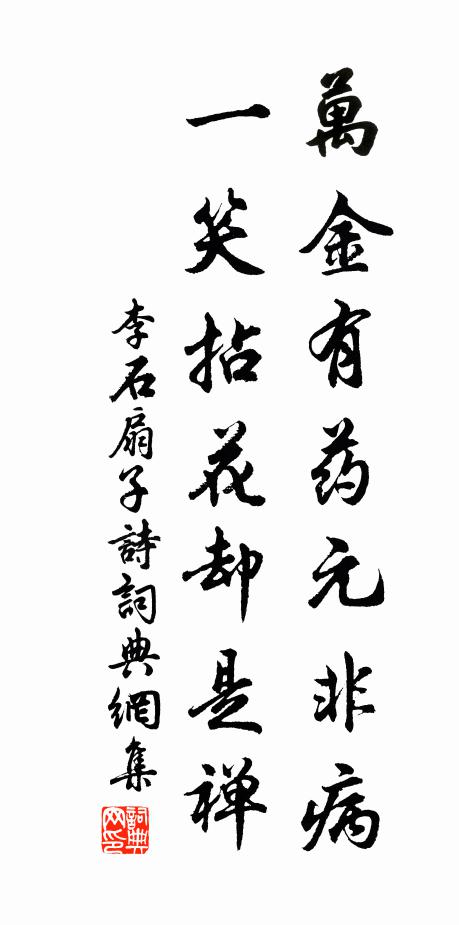 萬金有药元非病
一笑拈花却是禅
李石扇子詩詞典網集
詞典网印